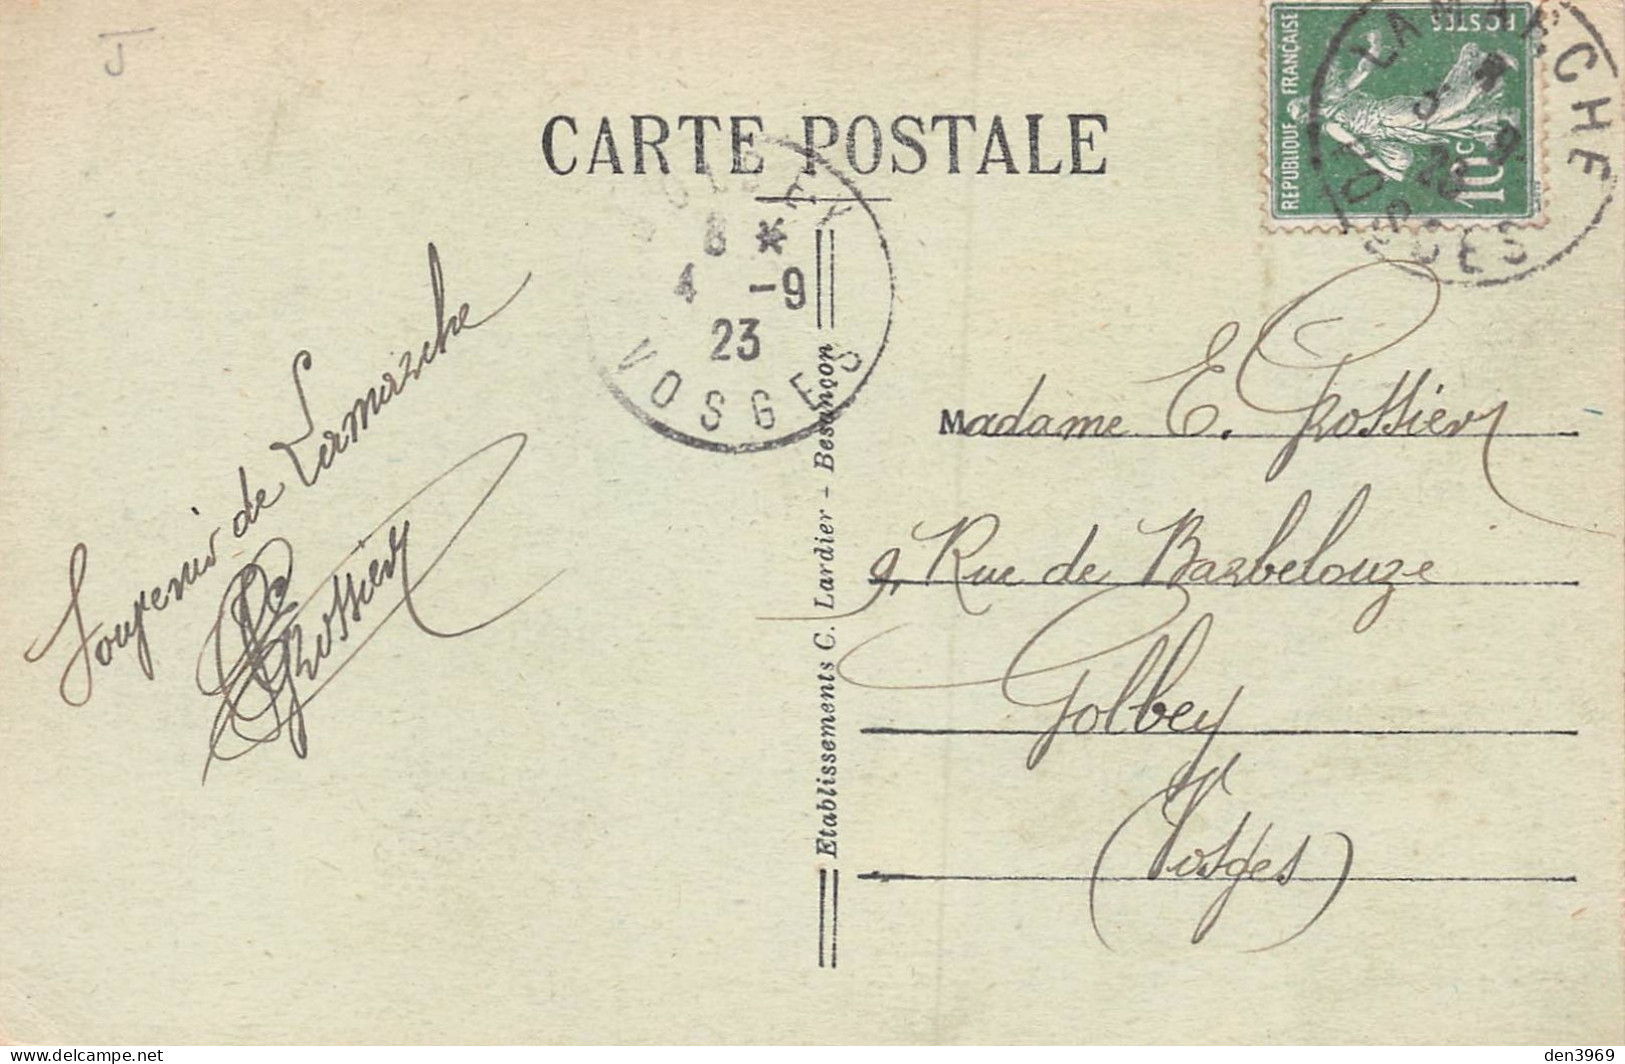 J
CARTE POSTALE
REPUBLIQUE FRANÇAISE
POSTES
10 c
LAMARCHE
VOSGES
GOLBEY
8 *
4 -9
23
VOSGES
Souvenir de Lamarche
Grossier
Madame E. Grossier
9, Rue de Barbelouze
Golbey
(Vosges)
Etablissements C. Lardier - Besançon
delcampe.net
den3969